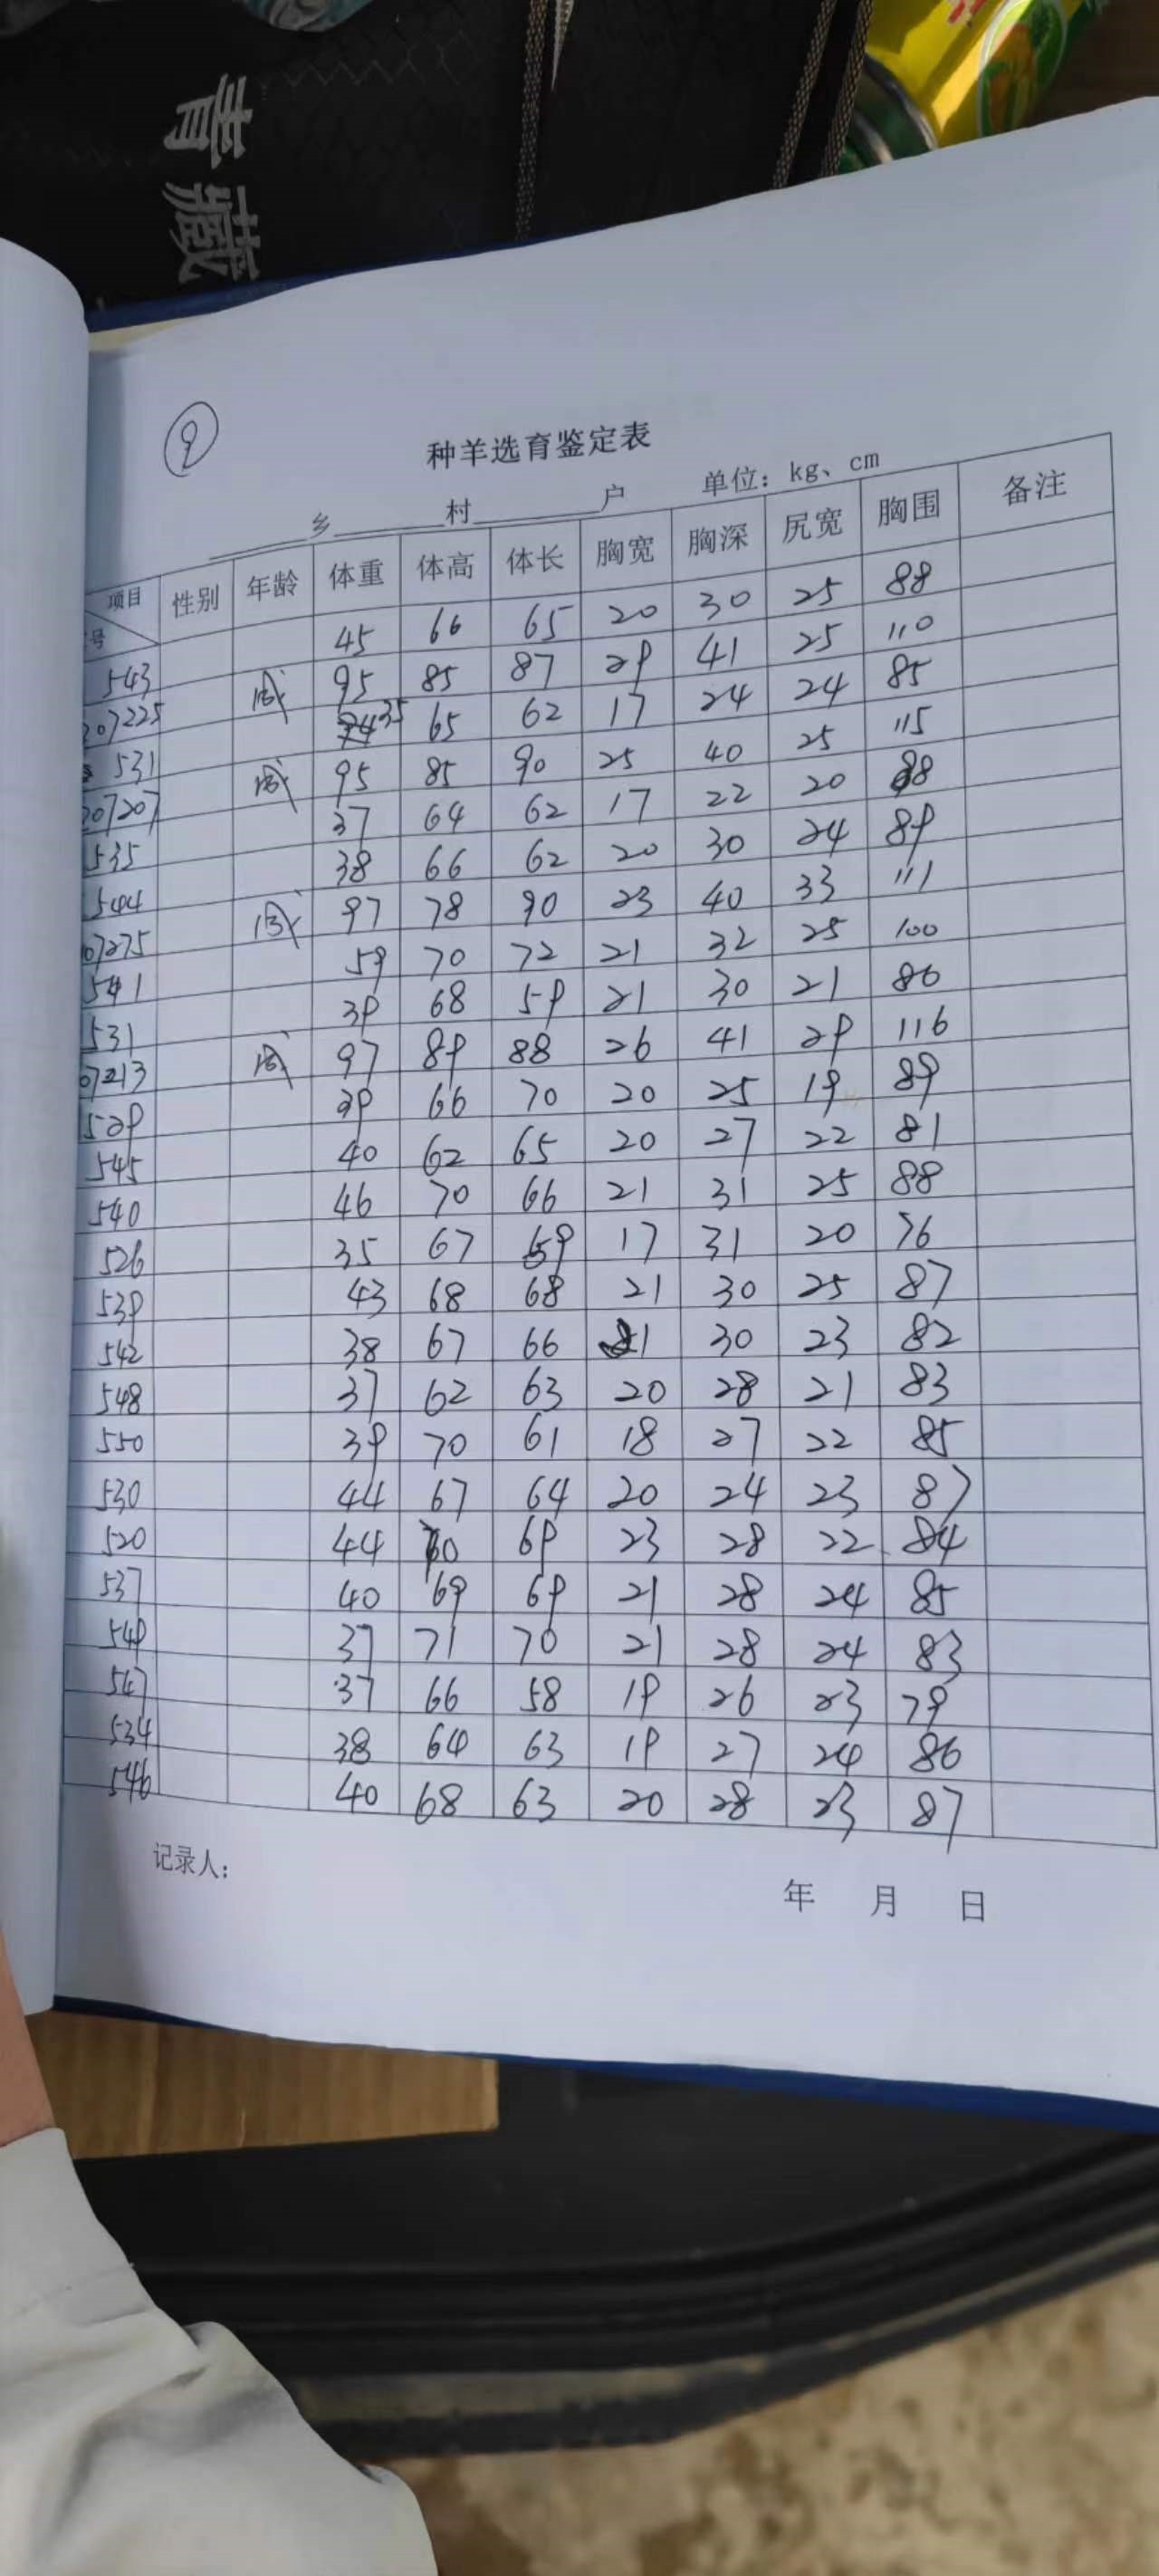 青藏
9
种羊选育鉴定表
乡 村 户 单位：kg、cm
项目 号 性别 年龄 体重 体高 体长 胸宽 胸深 尻宽 胸围 备注
543 45 66 65 20 30 25 88
207225 成 95 85 87 29 41 25 110
531 35 65 62 17 24 24 85
207207 成 95 85 90 25 40 25 115
535 37 64 62 17 22 20 88
544 38 66 62 20 30 24 89
07275 成 97 78 90 23 40 33 111
541 59 70 72 21 32 25 100
531 39 68 59 21 30 21 86
07213 成 97 89 88 26 41 29 116
529 39 66 70 20 25 19 89
545 40 62 65 20 27 22 81
540 46 70 66 21 31 25 88
526 35 67 59 17 31 20 76
539 43 68 68 21 30 25 87
542 38 67 66 21 30 23 82
548 37 62 63 20 28 21 83
550 39 70 61 18 27 22 85
530 44 67 64 20 24 23 87
520 44 70 69 23 28 22 84
537 40 69 69 21 28 24 85
549 37 71 70 21 28 24 83
547 37 66 58 19 26 23 79
534 38 64 63 19 27 24 86
546 40 68 63 20 28 23 87
记录人：
年 月 日